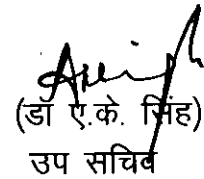 (डॉ ए.के. सिंह)
उप सचिव